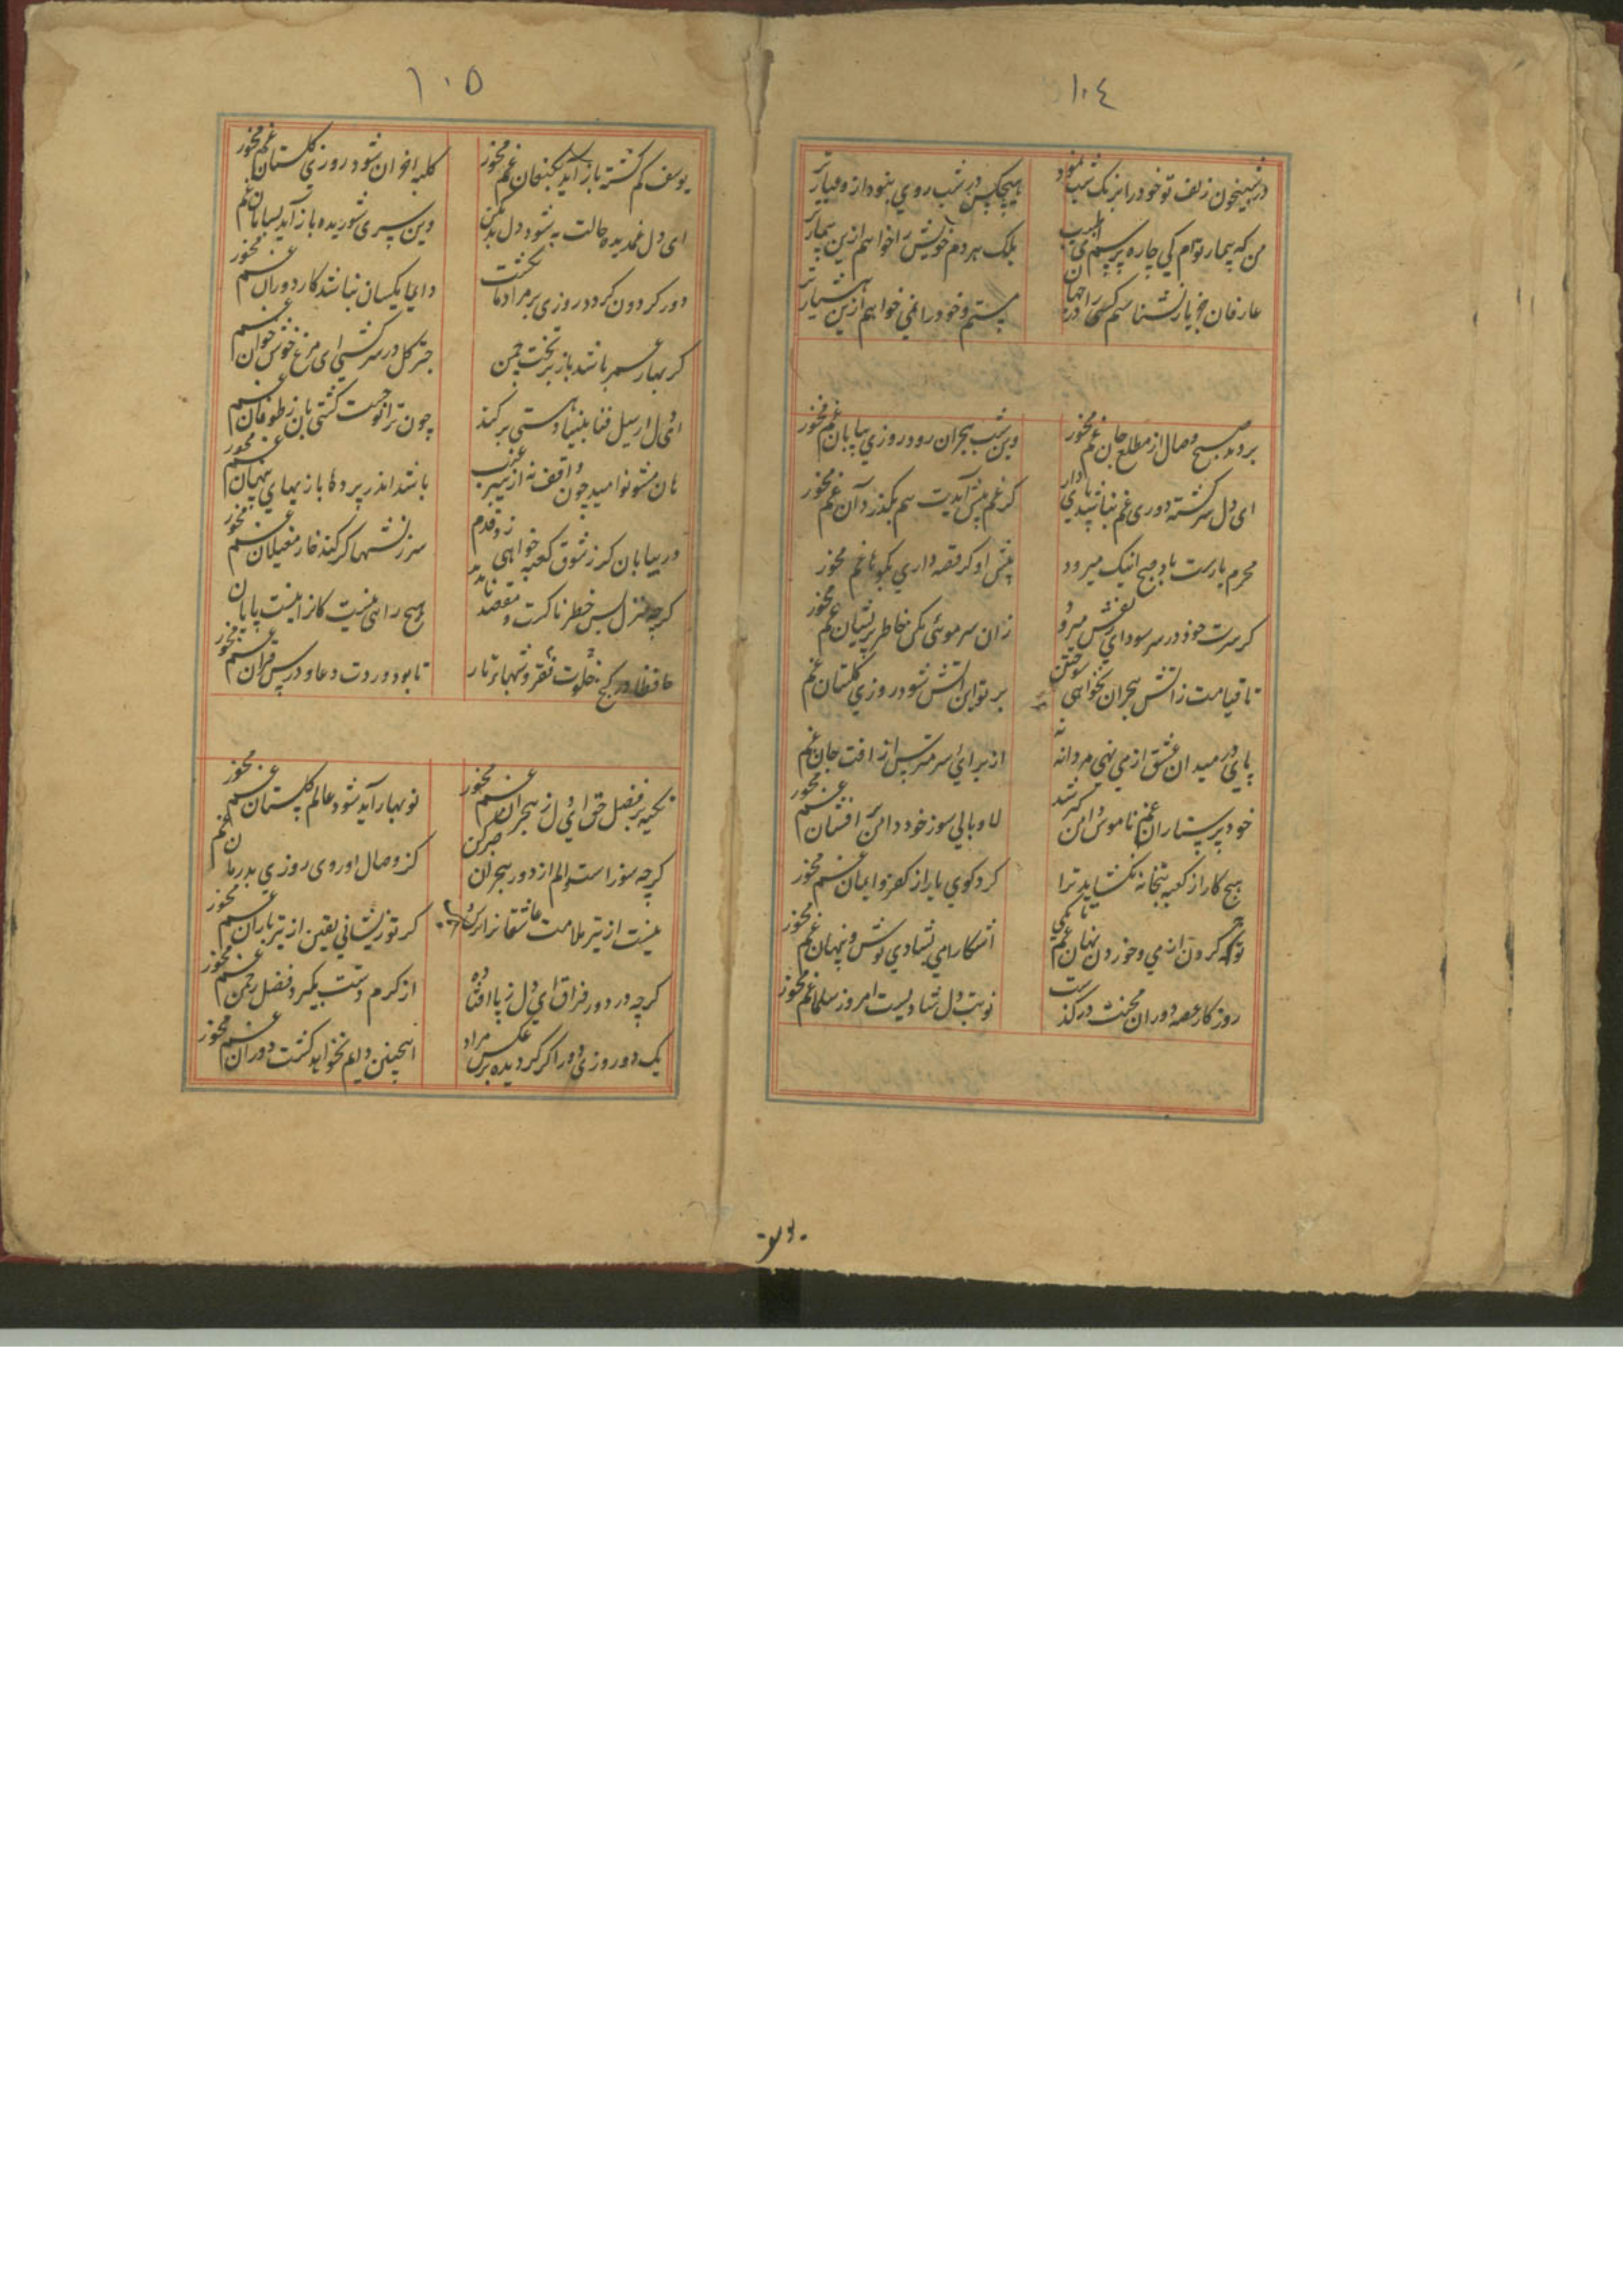 ١٠٤
در شبیخون زلف تو خود را بزیک شب نمود
هیچکس در شب روی بنود از و عیار تر
من که بیمار توام کی چاره پرسم ای طبیب
بلک هر دم خویش را خواهم ازین بیمار تر
عارفان جز یار نشناسم کسی را در جهان
مستم و خود را نمی خواهم ازین هشیار تر
بر دمد صبح وصال از مطلع جان غم مخور
وین شب هجران رود روزی بپایان غم مخور
ای دل سرکشته دوری غم نباشد پای دار
کر غم پیش آیدت هم بکذرد آن غم مخور
محرم یارست باد صبح اینک میرود
پیش او کر قصه داری بکو با غم مخور
کر سرت خود در سر سودای زلفش میرود
زان سر موئی مکن خاطر پریشان غم مخور
تا قیامت ز آتش هجران نخواهی سوختن
بر تو این آتش شود روزی کلستان غم
پای در میدان عشق ار می نهی مردانه نه
از برای سر مترس از آفت جان غم مخور
خود پرستاران غم ناموس دامن کر شد
لاوبالی سوز خود دامن بر افشان غم مخور
هیچ کار از کعبه بتخانه نکشاید ترا
کرد کوی یار از کفر و ایمان غم مخور
توبه کردن از می و خوردن پنهان غم تا بکی
آشکارا می بشادی نوش و پنهان غم مخور
روزکار غصه دوران محنت در کذشت
نوبت دل شادیست امروز سلمان غم مخور
١٠٥
یوسف کم کشته باز آید بکنعان غم مخور
کلبه احزان شود روزی کلستان غم مخور
ای دل غمدیده حالت به شود دل بد مکن
وین سری شوریده باز آید بسامان غم مخور
دور کردون کر دو روزی بر مراد ما نکشت
دایما یکسان نباشد کار دوران غم
کر بهار عمر باشد باز بر تخت چمن
چتر کل در سر کشی ای مرغ خوش خوان غم
ای دل ار سیل فنا بنیاد هستی بر کند
چون ترا نوحست کشتی بان ز طوفان غم مخور
هان مشو نومید چون واقف نه از سر غیب
باشد اندر پرده بازیهای پنهان غم مخور
در بیابان کر ز شوق کعبه خواهی زد قدم
سرزنشها کر کند خار مغیلان غم
کرچه منزل بس خطرناکست و مقصد ناپدید
هیچ راهی نیست کانرا نیست پایان غم مخور
حافظا در کنج خلوت فقر و شبهای تار
تا بود وردت دعا و درس قرآن غم
تکیه بر فضل حق ای دل ز هجران غم مخور
نوبهار آید شود عالم کلستان غم مخور
کرچه سوز است و الم از دور هجران صبر کن
کز وصال او روی روزی بدرمان غم
نیست از تیر ملامت عاشقانرا ترس
کر تو زیشانی یقین از تیر باران غم مخور
کرچه در دور فراق ای دل ز پا افتاده
از کرم دستت بکیرد فضل رحمن غم مخور
یک دو روزی دور اکر کردیده بر عکس مراد
اینچنین دایم نخواهد کشت دوران غم مخور